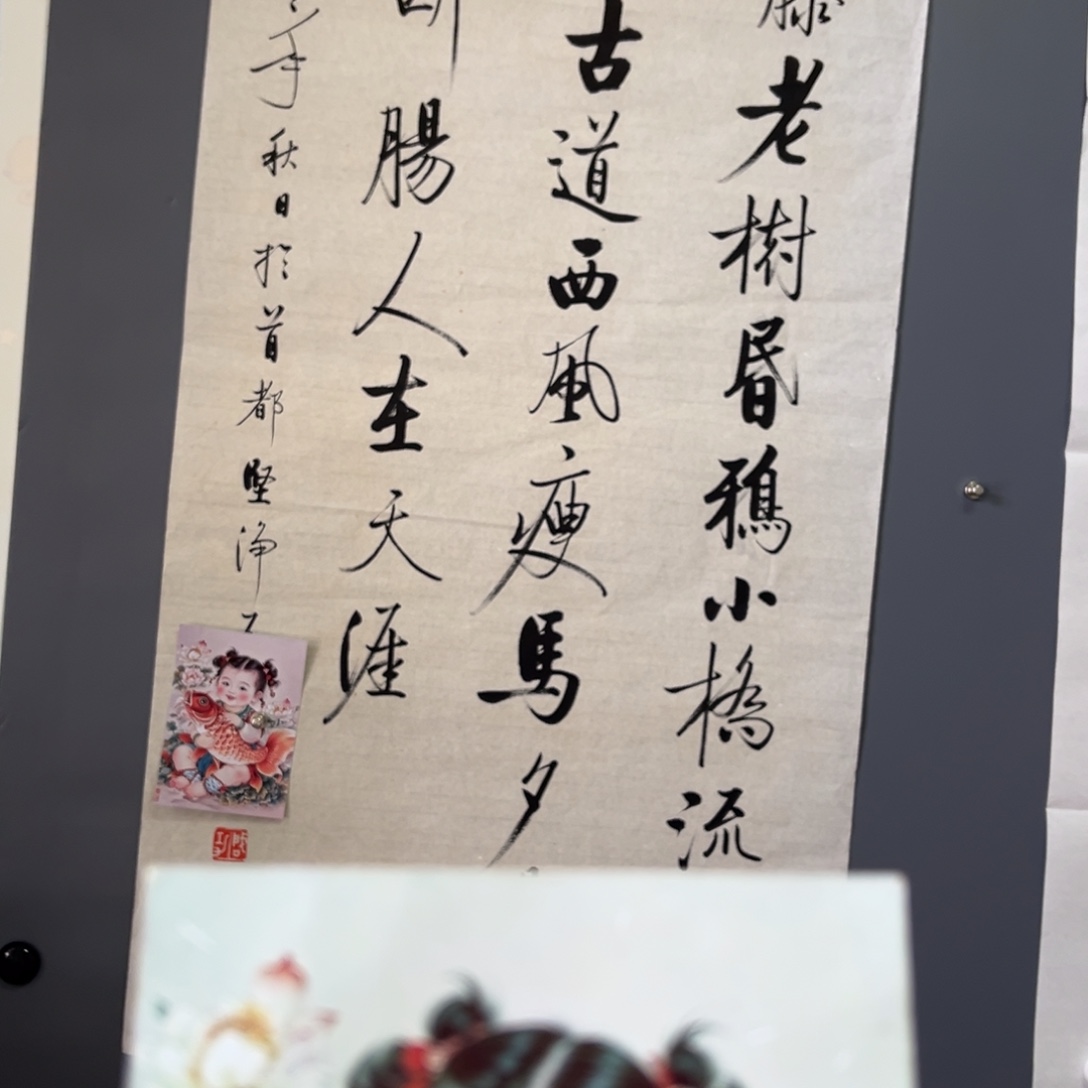 藤老樹昏鴉小橋流
古道西風瘦馬夕
斷腸人在天涯
年秋日於首都堅淨